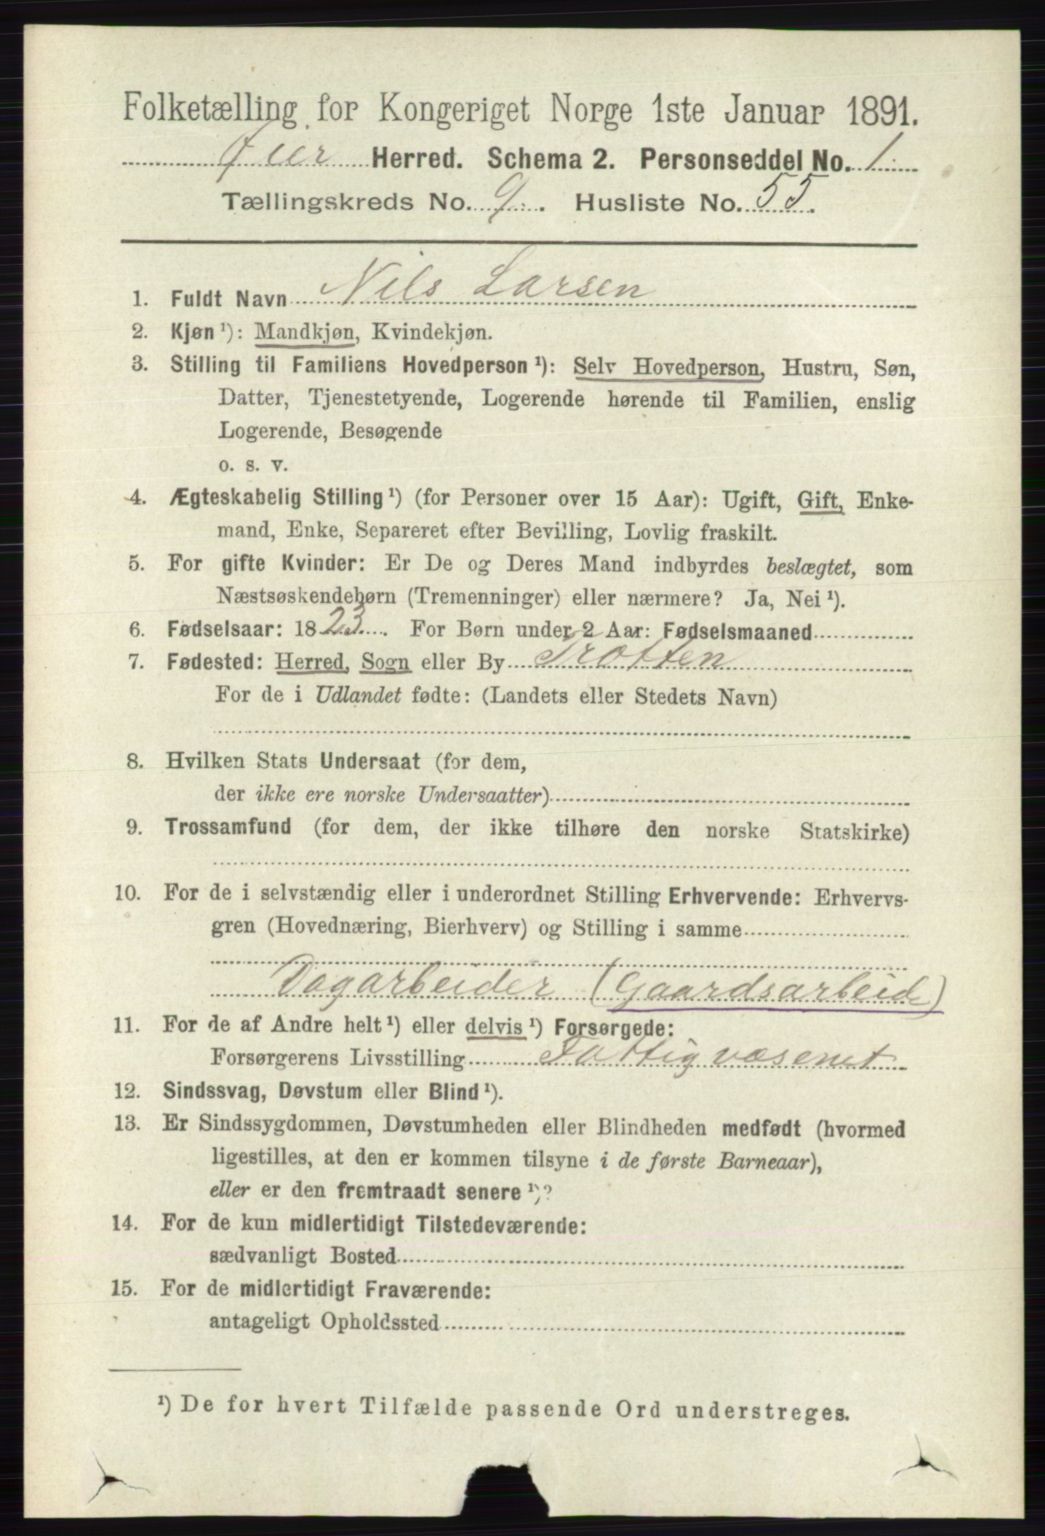 Folketælling for Kongeriget Norge 1ste Januar 1891.
Øier Herred. Schema 2. Personseddel No. 1
Tællingskreds No. 9. Husliste No. 55.
1. Fuldt Navn Nils Larsen
2. Kjøn ¹): Mandkjøn, Kvindekjøn.
3. Stilling til Familiens Hovedperson ¹): Selv Hovedperson, Hustru, Søn,
Datter, Tjenestetyende, Logerende hørende til Familien, enslig
Logerende, Besøgende
o. s. v.
4. Ægteskabelig Stilling ¹) (for Personer over 15 Aar): Ugift, Gift, Enke-
mand, Enke, Separeret efter Bevilling, Lovlig fraskilt.
5. For gifte Kvinder: Er De og Deres Mand indbyrdes beslægtet, som
Næstsøskendebørn (Tremenninger) eller nærmere? Ja, Nei ¹).
6. Fødselsaar: 1823. For Børn under 2 Aar: Fødselsmaaned
7. Fødested: Herred, Sogn eller By Trotten
For de i Udlandet fødte: (Landets eller Stedets Navn)
8. Hvilken Stats Undersaat (for dem,
der ikke ere norske Undersaatter)
9. Trossamfund (for dem, der ikke tilhøre den norske Statskirke)
10. For de i selvstændig eller i underordnet Stilling Erhvervende: Erhvervs-
gren (Hovednæring, Bierhverv) og Stilling i samme
Dagarbeider (Gaardsarbeide)
11. For de af Andre helt ¹) eller delvis ¹) Forsørgede:
Forsørgerens Livsstilling Fattigvæsenet
12. Sindssvag, Døvstum eller Blind ¹).
13. Er Sindssygdommen, Døvstumheden eller Blindheden medfødt (hvormed
ligestilles, at den er kommen tilsyne i de første Barneaar),
eller er den fremtraadt senere ¹)?
14. For de kun midlertidigt Tilstedeværende:
sædvanligt Bosted
15. For de midlertidigt Fraværende:
antageligt Opholdssted
¹) De for hvert Tilfælde passende Ord understreges.